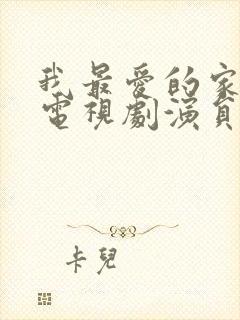 我最愛的家
電視劇演員
卡兒